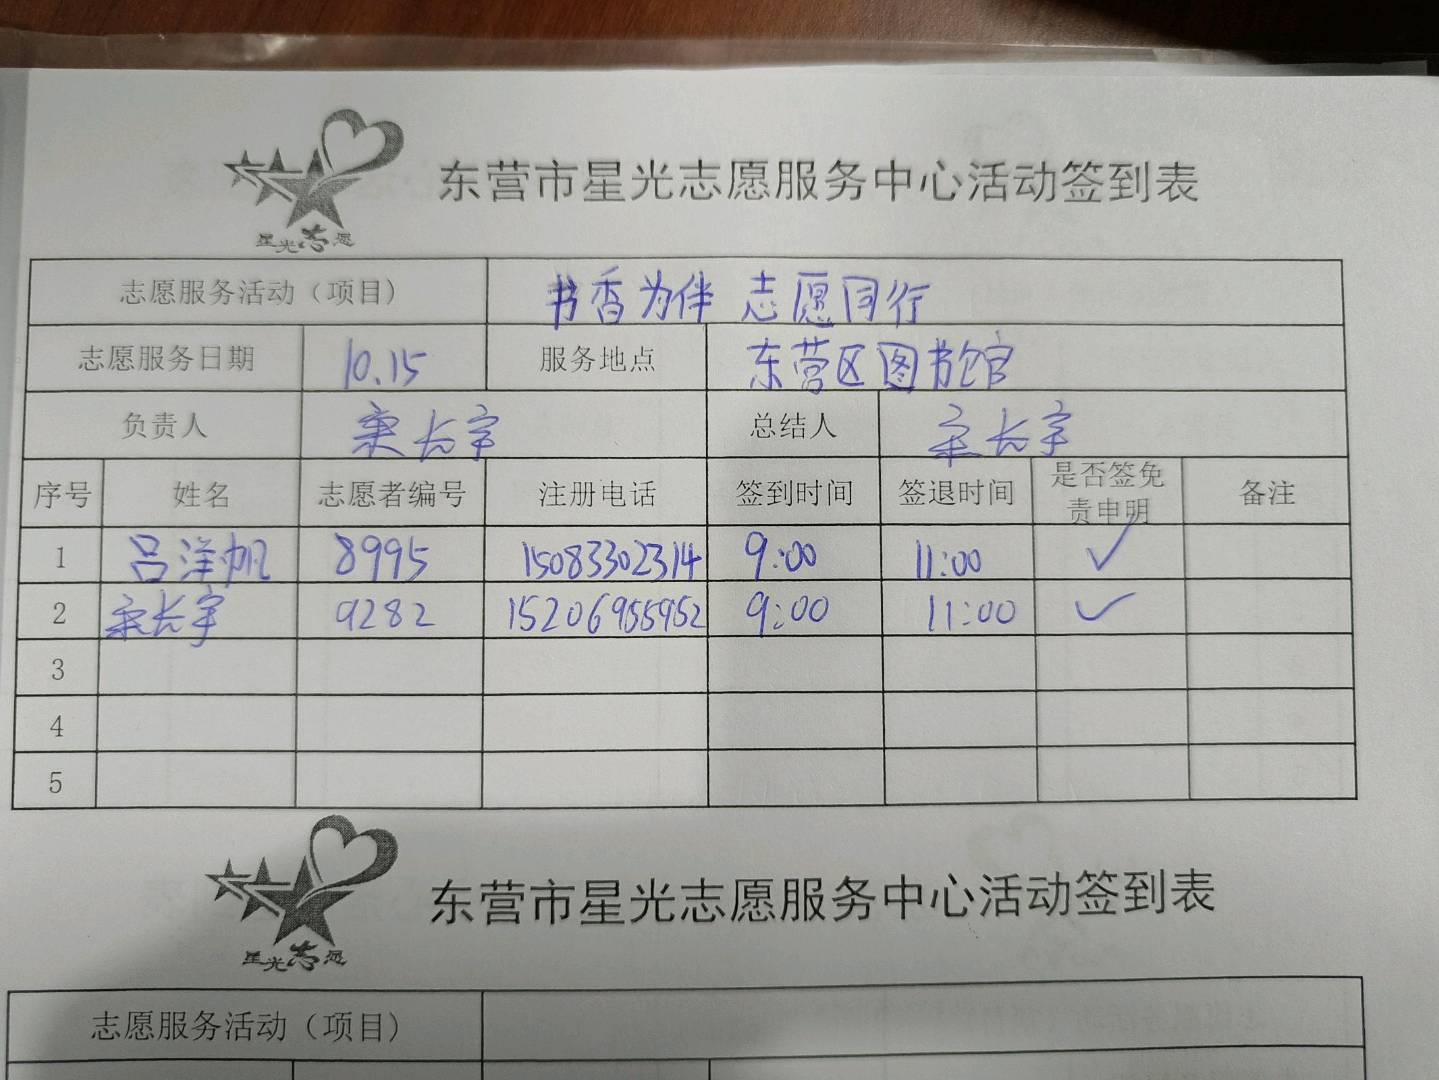 星光志愿
东营市星光志愿服务中心活动签到表
志愿服务活动（项目） 书香为伴 志愿同行
志愿服务日期 10.15 服务地点 东营区图书馆
负责人 长宇 总结人 长宇
序号 姓名 志愿者编号 注册电话 签到时间 签退时间 是否签免责申明 备注
1 吕洋帆 8995 15083302314 9:00 11:00 ✓
2 长宇 9282 15206955952 9:00 11:00 ✓
3
4
5
星光志愿
东营市星光志愿服务中心活动签到表
志愿服务活动（项目）